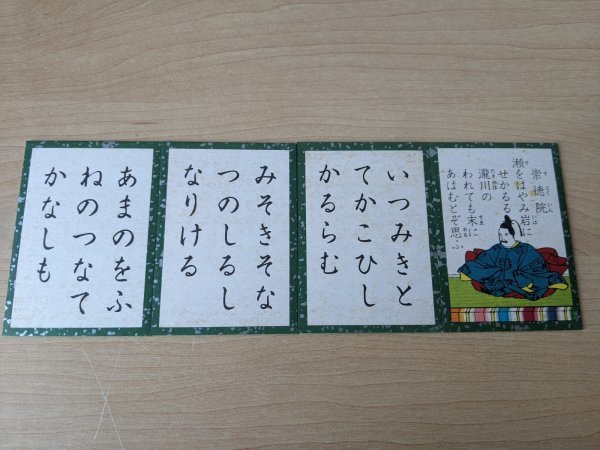 崇徳院
瀬をはやみ岩に
せかるる
瀧川の
われても末に
あはむとぞ思ふ
いつみきと
てかこひし
かるらむ
みそきそな
つのしるし
なりける
あまのをふ
ねのつなて
かなしも